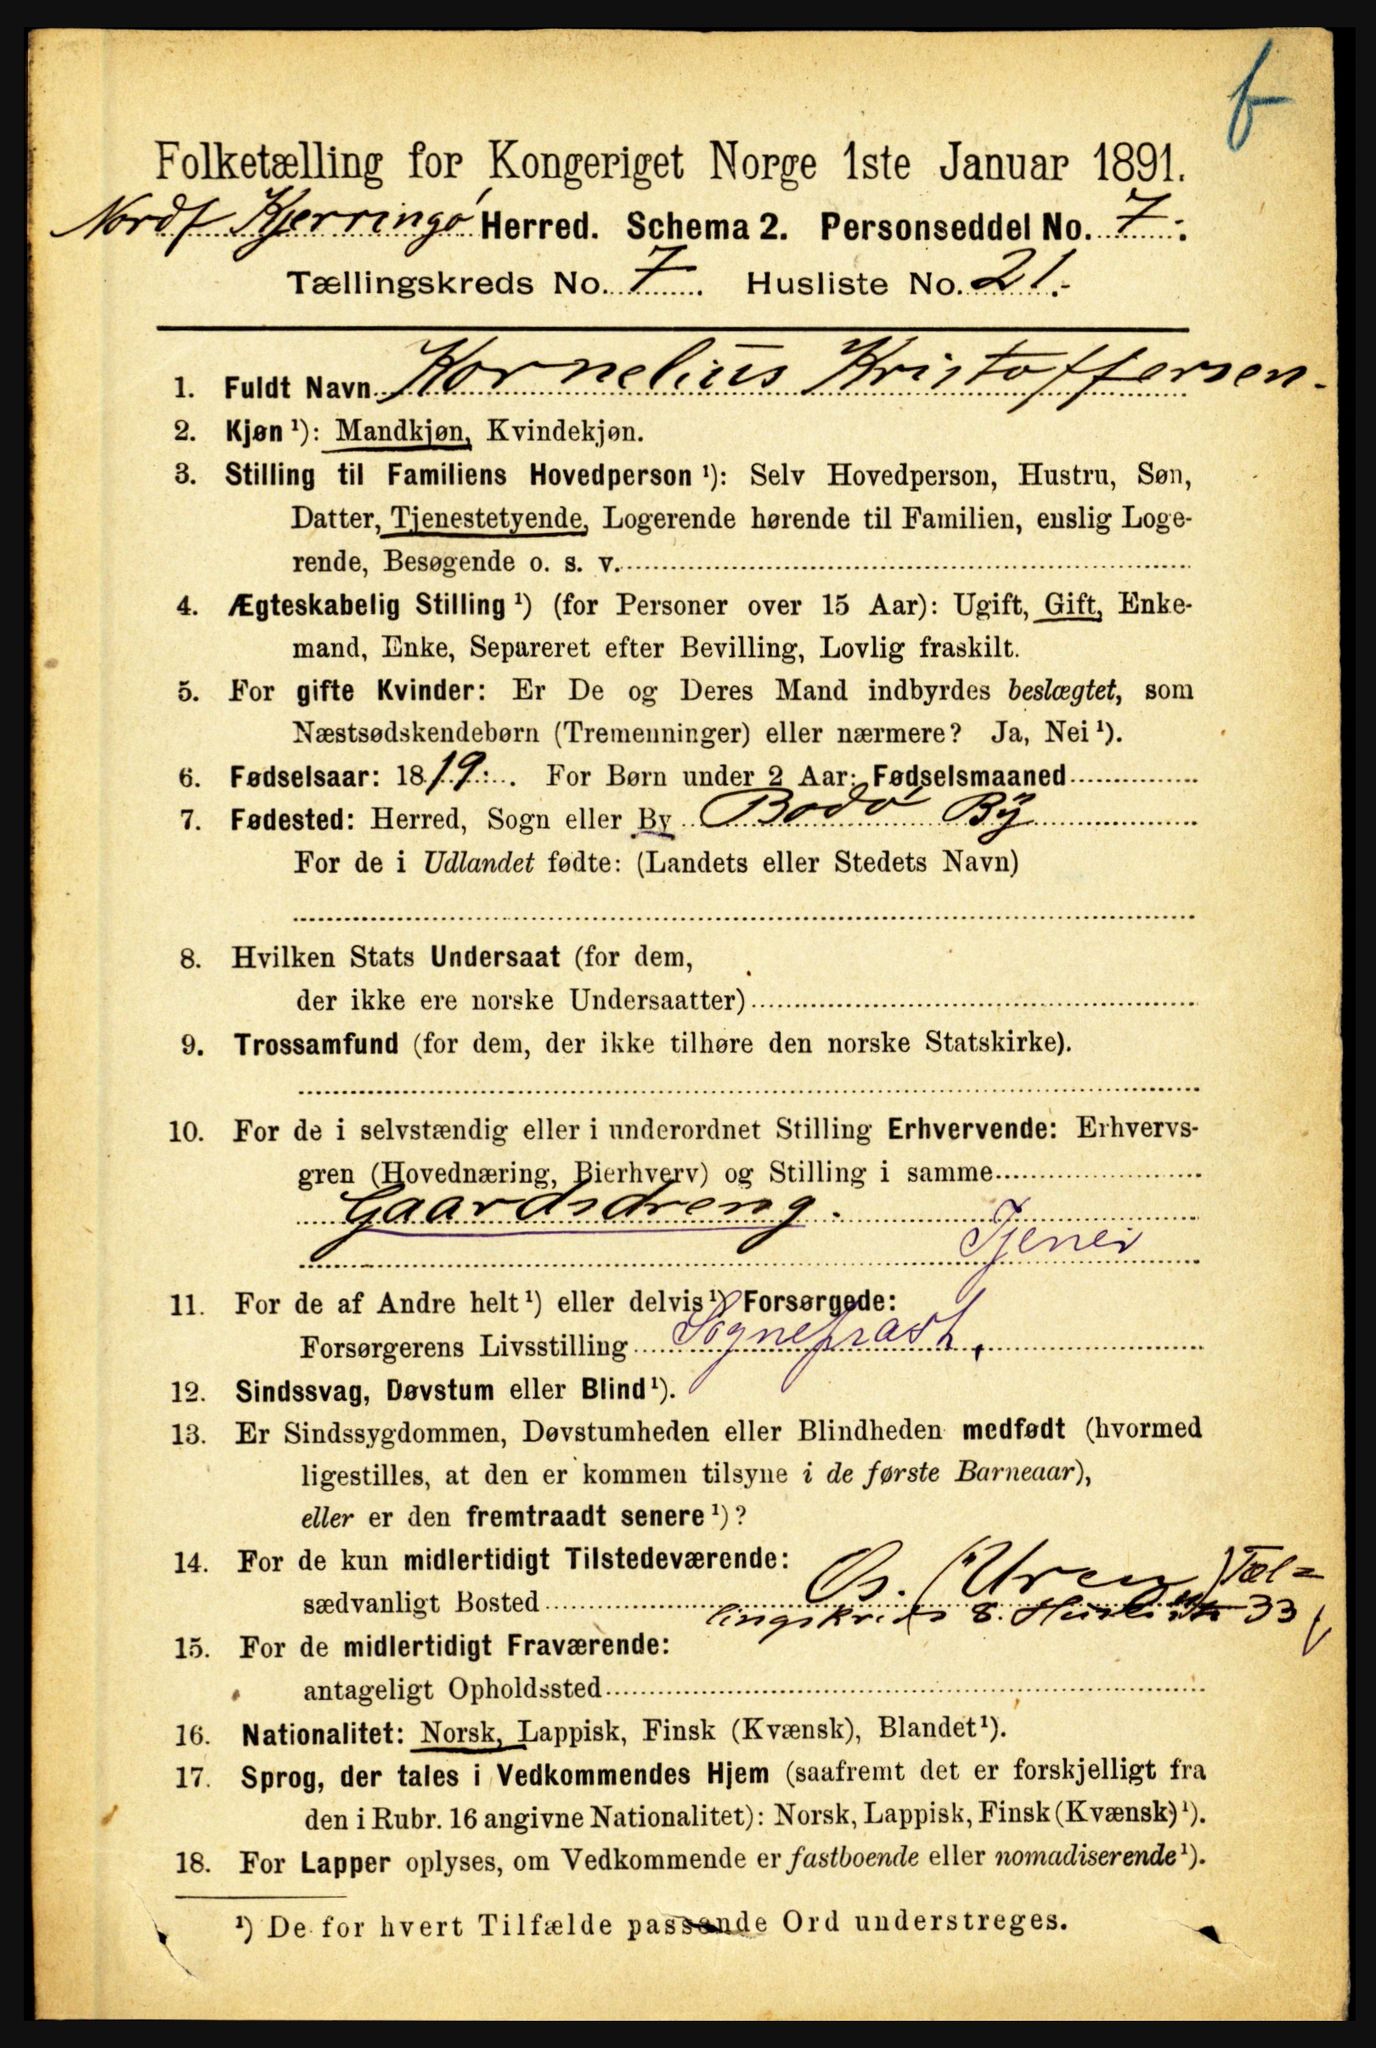 b
Folketælling for Kongeriget Norge 1ste Januar 1891.
Nordf Kjerringø Herred. Schema 2. Personseddel No. 7.
Tællingskreds No. 7. Husliste No. 21.
1. Fuldt Navn Kornelius Kristoffersen.
2. Kjøn ¹): Mandkjøn, Kvindekjøn.
3. Stilling til Familiens Hovedperson ¹): Selv Hovedperson, Hustru, Søn,
Datter, Tjenestetyende, Logerende hørende til Familien, enslig Loge-
rende, Besøgende o. s. v.
4. Ægteskabelig Stilling ¹) (for Personer over 15 Aar): Ugift, Gift, Enke-
mand, Enke, Separeret efter Bevilling, Lovlig fraskilt.
5. For gifte Kvinder: Er De og Deres Mand indbyrdes beslægtet, som
Næstsødskendebørn (Tremenninger) eller nærmere? Ja, Nei ¹).
6. Fødselsaar: 1819. For Børn under 2 Aar: Fødselsmaaned
7. Fødested: Herred, Sogn eller By Bodø By
For de i Udlandet fødte: (Landets eller Stedets Navn)
8. Hvilken Stats Undersaat (for dem,
der ikke ere norske Undersaatter)
9. Trossamfund (for dem, der ikke tilhøre den norske Statskirke).
10. For de i selvstændig eller i underordnet Stilling Erhvervende: Erhvervs-
gren (Hovednæring, Bierhverv) og Stilling i samme
Gaardsdreng.
Tjener
11. For de af Andre helt ¹) eller delvis ¹) Forsørgede:
Forsørgerens Livsstilling Sogneprast.
12. Sindssvag, Døvstum eller Blind ¹).
13. Er Sindssygdommen, Døvstumheden eller Blindheden medfødt (hvormed
ligestilles, at den er kommen tilsyne i de første Barneaar),
eller er den fremtraadt senere ¹)?
14. For de kun midlertidigt Tilstedeværende:
sædvanligt Bosted Uren Tæl=
lingskreds 8. Husliste 33
15. For de midlertidigt Fraværende:
antageligt Opholdssted
16. Nationalitet: Norsk, Lappisk, Finsk (Kvænsk), Blandet ¹).
17. Sprog, der tales i Vedkommendes Hjem (saafremt det er forskjelligt fra
den i Rubr. 16 angivne Nationalitet): Norsk, Lappisk, Finsk (Kvænsk) ¹).
18. For Lapper oplyses, om Vedkommende er fastboende eller nomadiserende ¹).
¹) De for hvert Tilfælde passende Ord understreges.